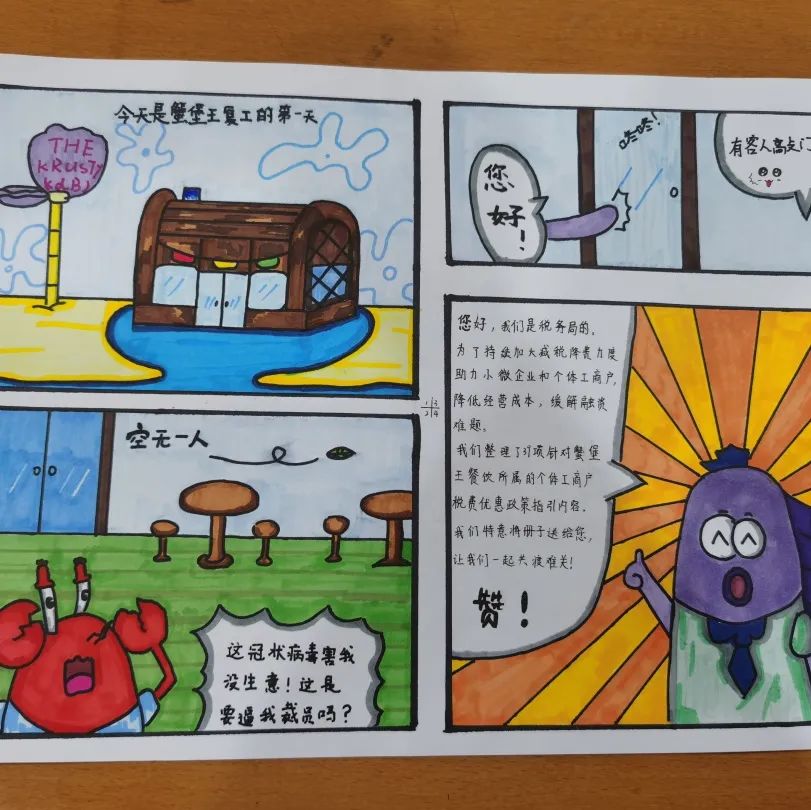 今天是蟹堡王复工的第一天
THE
KRUSTY
空无一人
这冠状病毒害我
没生意！这是
要逼我裁员吗？
1 3
2 4
您
好！
咚咚！
有客人高点门
您好，我们是税务局的。
为了持续加大减税降费力度
助力小微企业和个体工商户，
降低经营成本，缓解融资
难题。
我们整理了17项针对蟹堡
王餐饮所属的个体工商户
税费优惠政策指引内容。
我们特意将册子送给您，
让我们一起共渡难关！
赞！